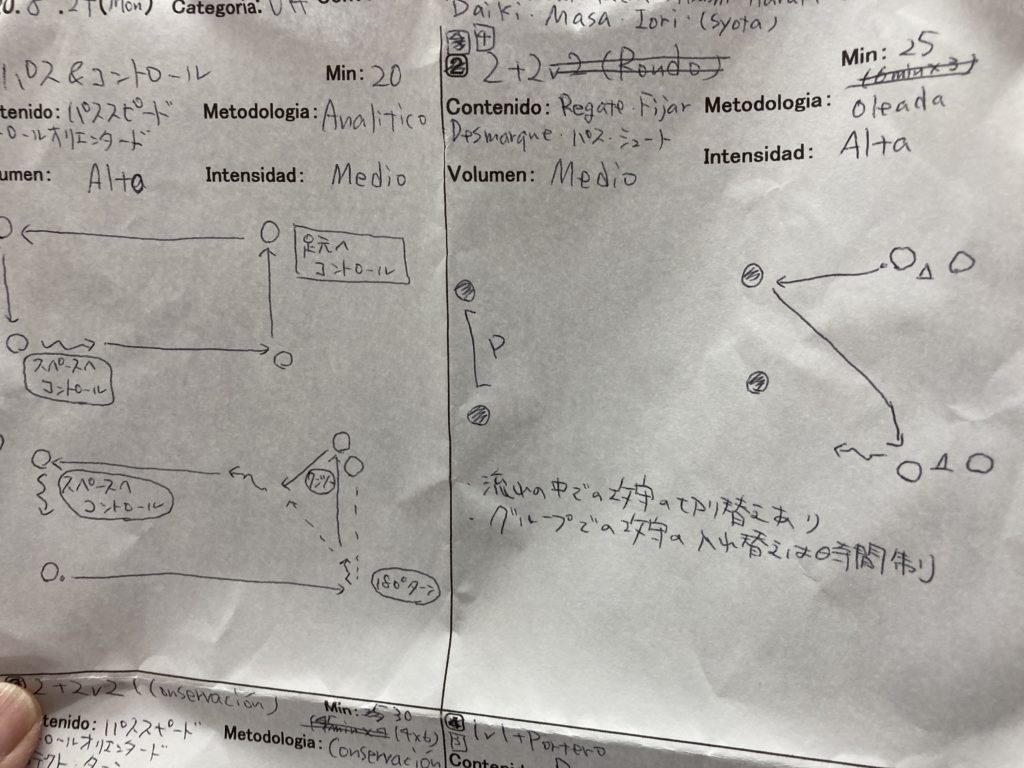 Categoria:
パス&コントロール
Min: 20
tenido: パススピード
Metodologia: Analitico
ロールオリエンタード
umen: Alta
Intensidad: Medio
足元へ
コントロール
スペースへ
コントロール
スペースへ
コントロール
ワンツー
180°ターン
Daiki・Masa・Iori・(Syota)
② 2+2v2 (Rondo)
Min: 25
(6min×3)
Contenido: Regate・Fijar
Metodologia: oleada
Desmarque・パス・シュート
Volumen: Medio
Intensidad: Alta
P
・流れの中での攻守の切り替えあり
・グループでの攻守の入れ替えは時間制り
2+2v2 (Conservación)
Min: 30
(4×6)
tenido: パススピード
Metodologia: Conservación
ロールオリエンタード
ターン
④ 1v1+Portero
Conteni